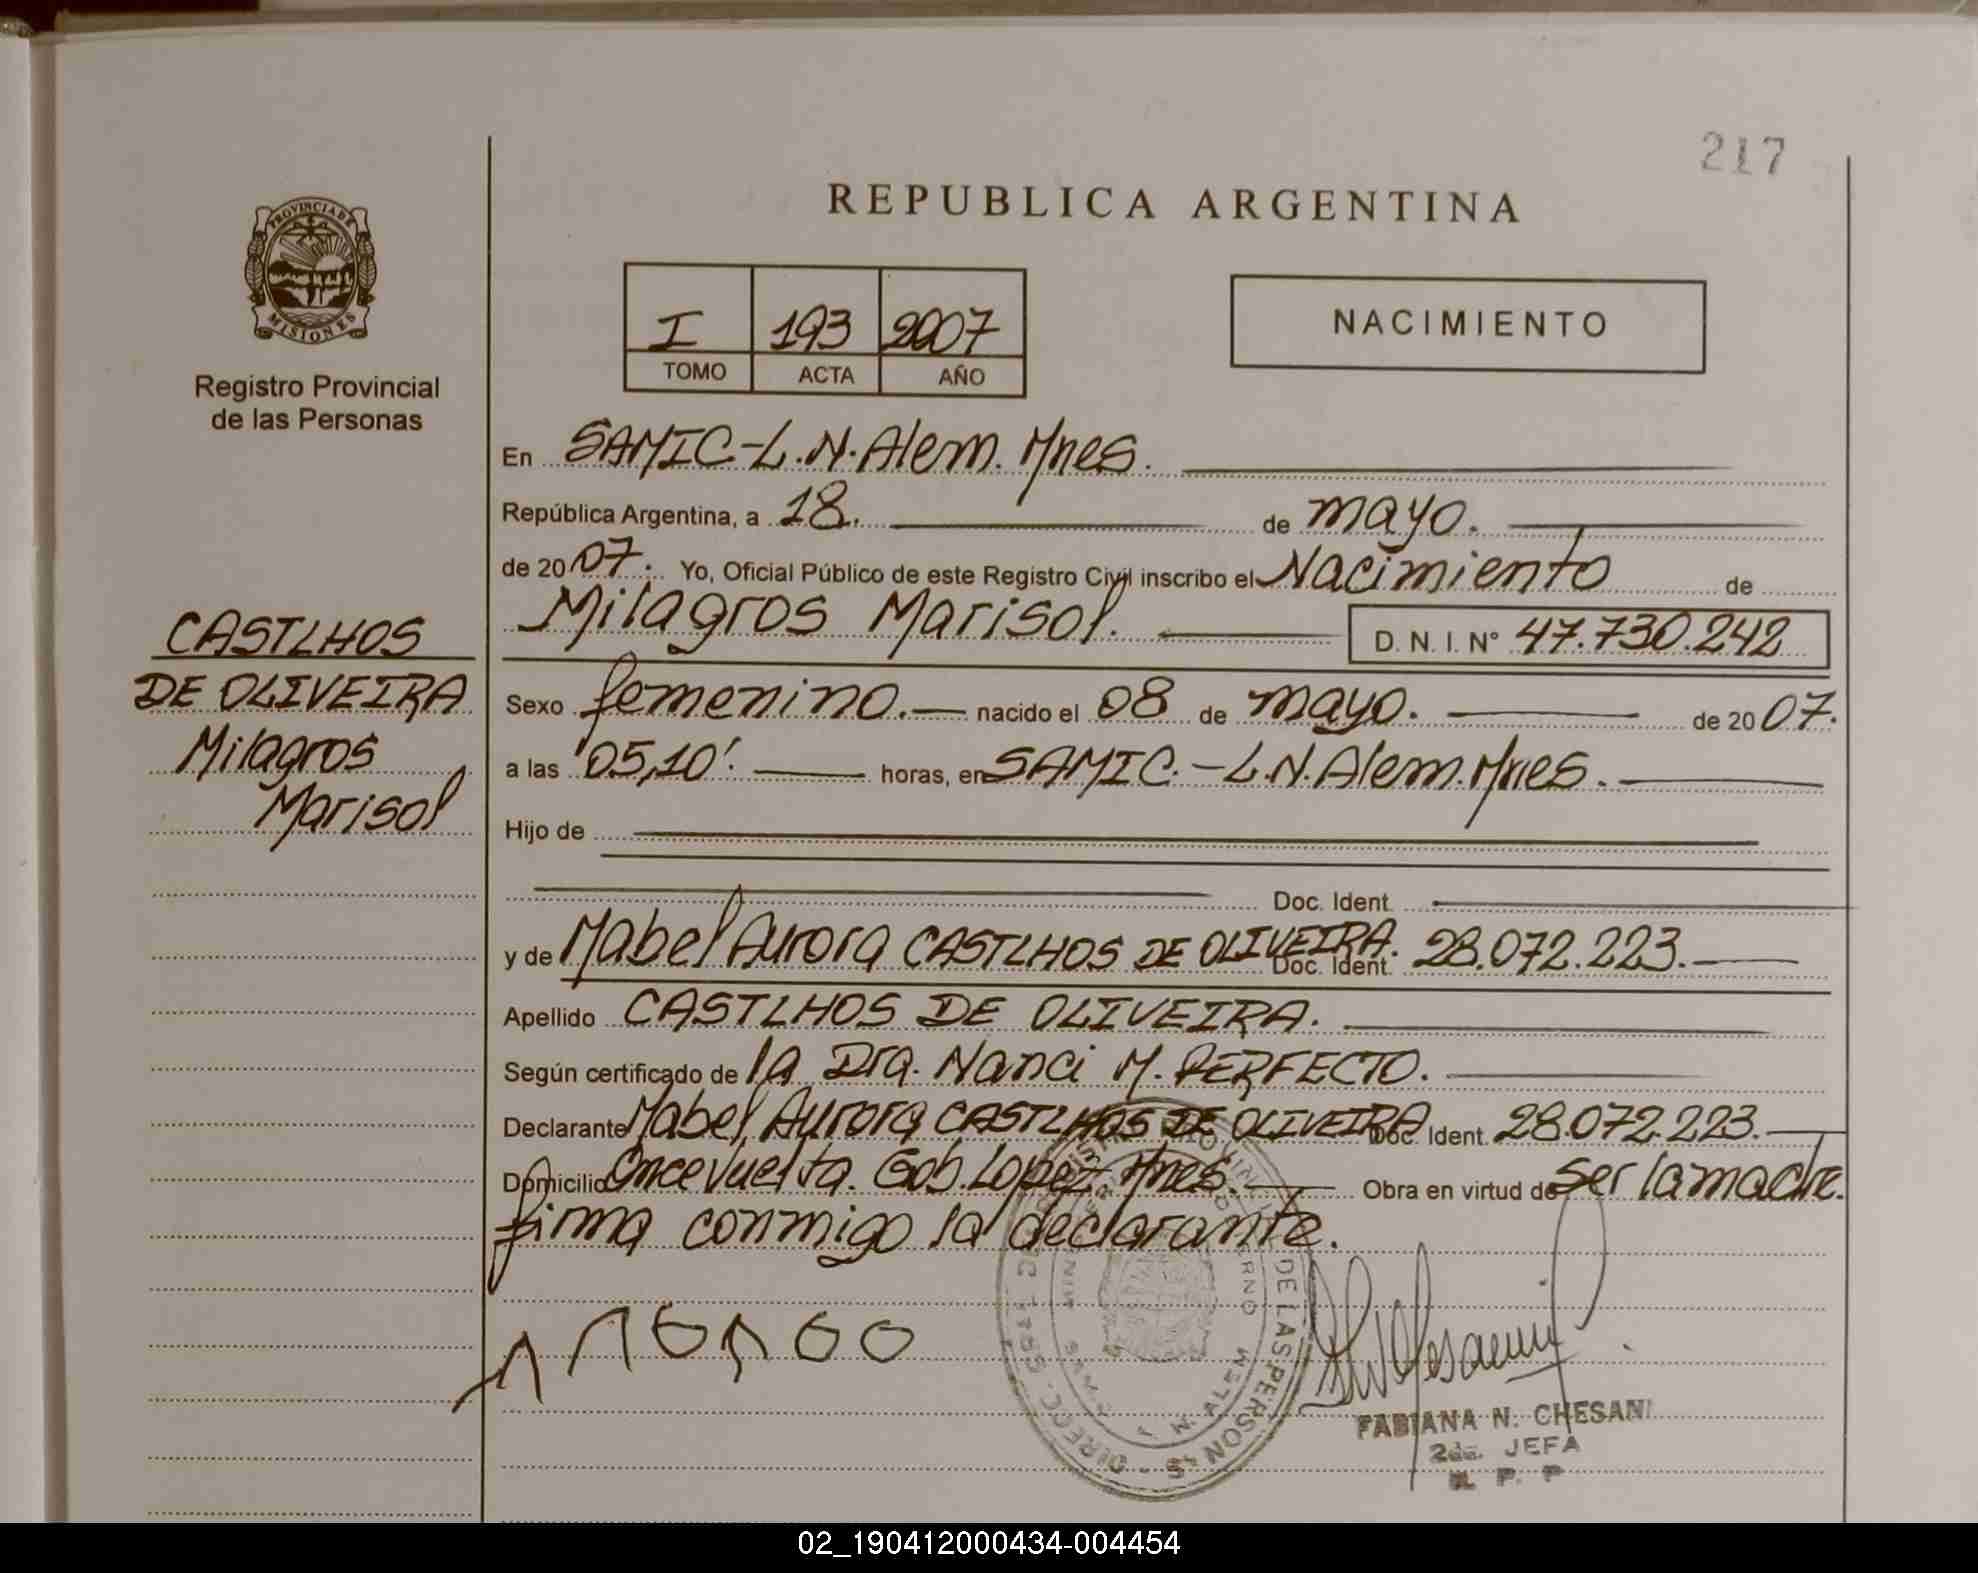 217
REPUBLICA ARGENTINA
PROVINCIA DE
MISIONES
Registro Provincial
de las Personas
I 193 2007
TOMO ACTA AÑO
NACIMIENTO
En SAMIC-L.N.Alem. Mnes.
República Argentina, a 18. de mayo.
de 2007. Yo, Oficial Público de este Registro Civil inscribo el Nacimiento de
Milagros Marisol. D. N. I. N° 47.730.242
CASTLHOS
DE OLIVEIRA
Milagros
Marisol
Sexo femenino. nacido el 08 de mayo. de 2007.
a las 05,10'. horas, en SAMIC.-L.N.Alem.Mnes.
Hijo de
Doc. Ident.
y de Mabel Aurora CASTLHOS DE OLIVEIRA. Doc. Ident. 28.072.223.
Apellido CASTLHOS DE OLIVEIRA.
Según certificado de la Dra. Nanci M. PERFECTO.
Declarante Mabel Aurora CASTLHOS DE OLIVEIRA Doc. Ident. 28.072.223.
Domicilio Oncevuelta. Gob. Lopez. Mnes. Obra en virtud de ser la madre.
firma conmigo la declarante.
FABIANA N. CHESANI
2da. JEFA
R. P. P
02_190412000434-004454